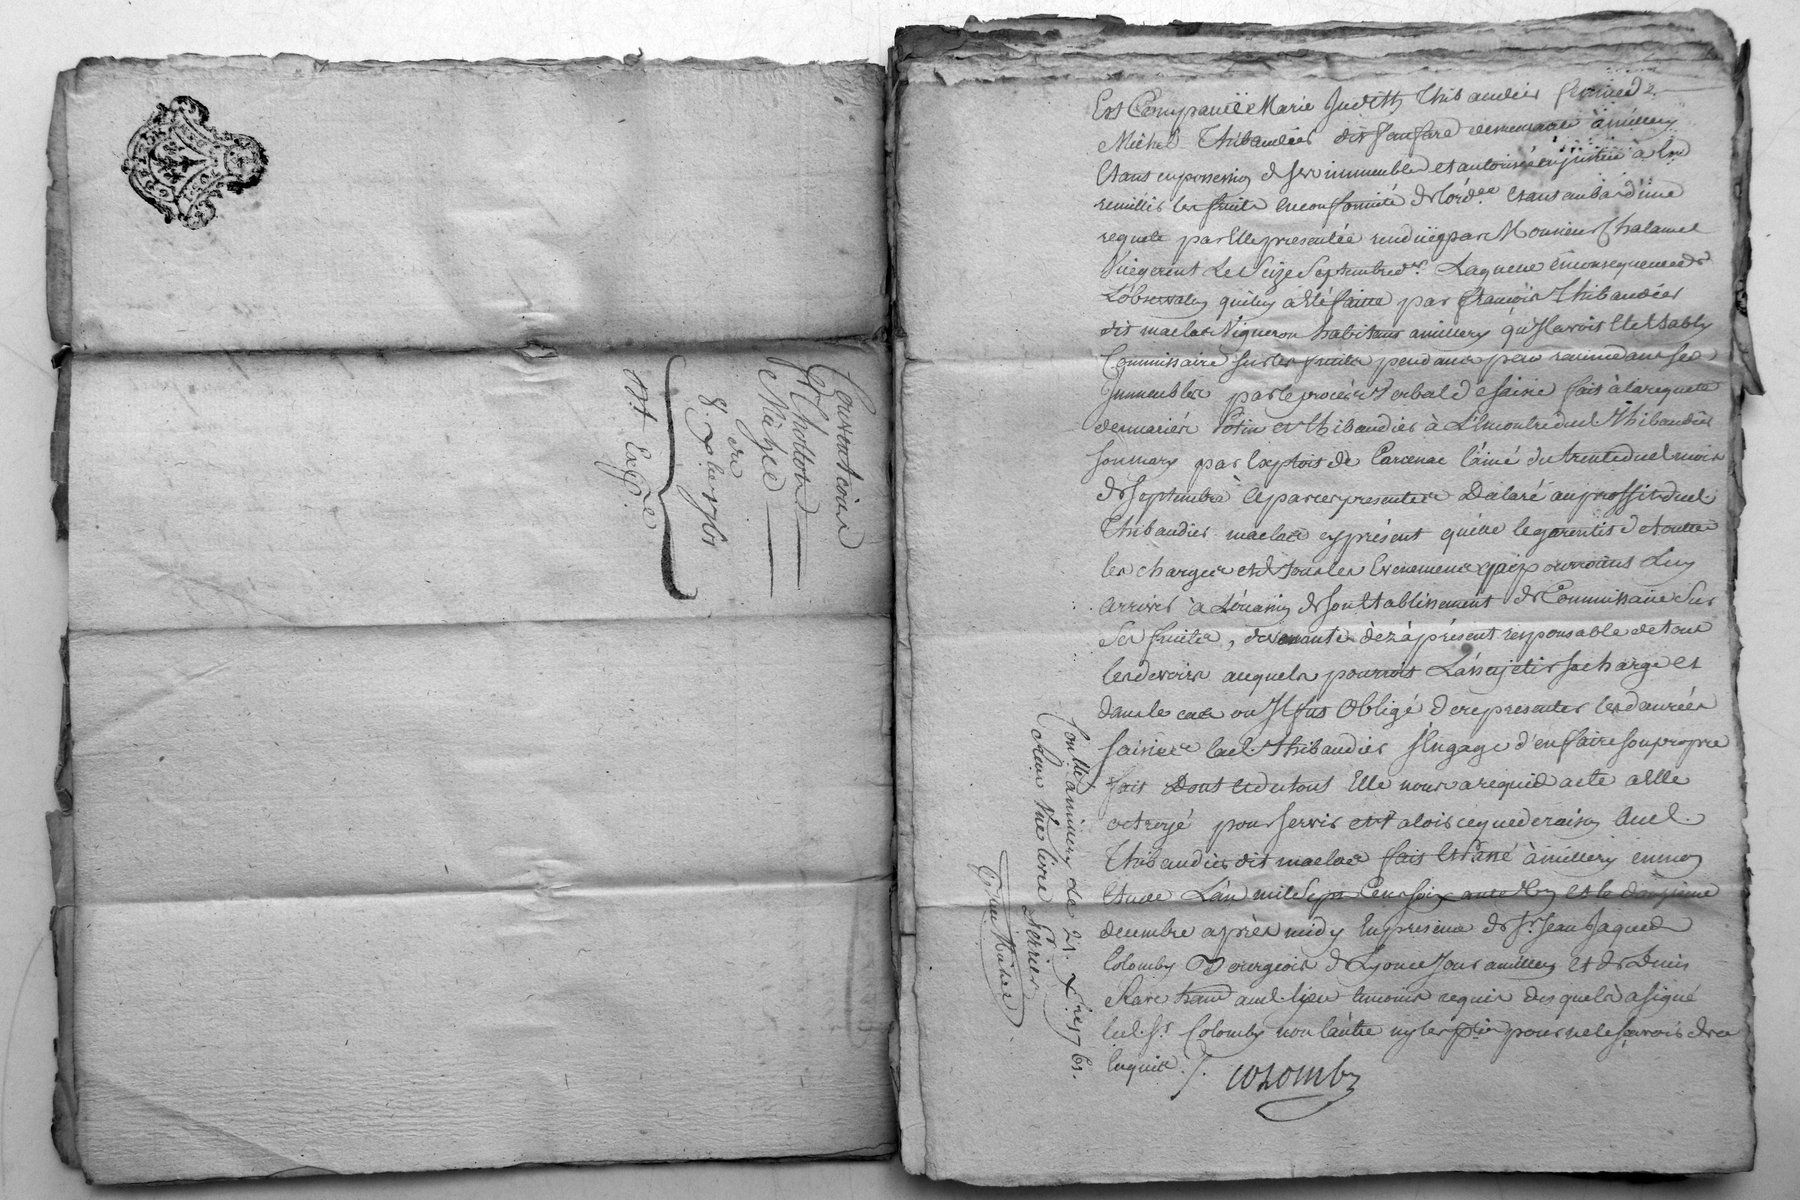 Convention
Chotton
Mizee
du
8. xbre 1761
Est Comparüe Marie Judith Thibaudier femme de
Michel Thibaudier dit fanfare demeurante à millery
Etant en possession de ses immeubles et autorisée en justice à
receuillir les fruits en conformité de l'ord.ce Etant au bas d'une
requete par Elle presentée rendüe par Monsieur Chalamel
Vicegerent Le Seize Septembre d.r Laquelle en consequence de
L'observation qui luy a Eté faitte par françois Thibaudier
dit maclas Vigneron habitant a millery qu'Il avoit Eté Etably
Commissaire sur les fruits pendants par racines dans ses
Immeubles par le procès Verbal de saisie fait à la requete
de mariés Potin et Thibaudier à L'encontre dud Thibaudier
son mary par Exploit de Parcenac l'ainé du trente dud mois
de Septembre à les presentes Declaré au proffit dud
Thibaudier maclas cy présent qu'elle le garentit de toutes
les charges et de tous les Evenements qui pourroient Luy
arriver à L'ocasion de son Etablissement de Commissaire sur
ses fruits, devenante dèz à présent responsable de tous
les devoirs auquels pourroit L'assujetir sa charge et
dans le cas ou Il fut Obligé de representer les danrées
saisies lad. Thibaudier s'Engage d'en faire son propre
fait Dont et du tout Elle nous a requis acte a Elle
octroyé pour servir et valoir ce que de raison aud.
Thibaudier dit maclas fait Et Passé à millery en mon
Etude L'an mil Sept Cent soixante Un et le douzieme
decembre après midy En presence de Sr. Jean Jaques
Colomby Bourgeois de Lyon Etant a millery et de Denis
aud. lieu temoins requis des quels a signé
led. Sr. Colomby non l'autre ny les pties pour ne le sçavoir de ce
Enquis ./. colomby
Conllé a millery le 21. xbre 1761.
Reçu Une livre